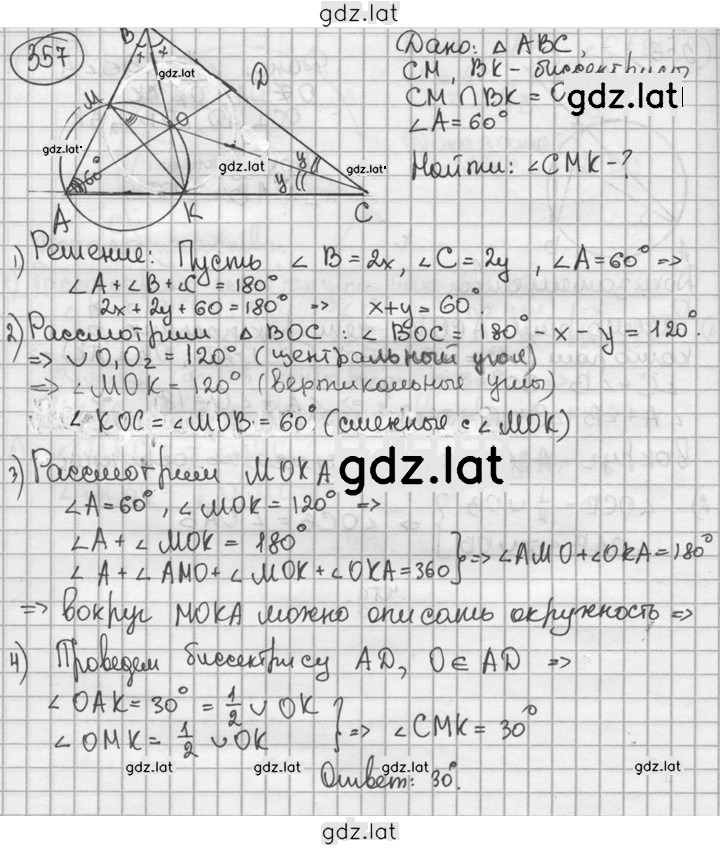 gdz.lat
357
B
gdz.lat
D
M
gdz.lat
O
gdz.lat
gdz.lat
y
y
60°
A
K
C
Дано: △ ABC,
CM, BK - биссектрисы
CM ∩ BK = O
gdz.lat
∠A = 60°
Найти: ∠CMK - ?
1) Решение: Пусть ∠B = 2x, ∠C = 2y, ∠A = 60° ⇒
∠A + ∠B + ∠C = 180°
2x + 2y + 60 = 180° ⇒ x + y = 60°.
2) Рассмотрим △BOC: ∠BOC = 180° - x - y = 120°.
⇒ ∪O₁O₂ = 120° (центральный угол)
⇒ ∠MOK = 120° (вертикальные углы)
∠KOC = ∠MOB = 60° (смежные с ∠MOK)
3) Рассмотрим MOKA
gdz.lat
∠A = 60°, ∠MOK = 120° ⇒
∠A + ∠MOK = 180°
∠A + ∠AMO + ∠MOK + ∠OKA = 360 } ⇒ ∠AMO + ∠OKA = 180°
⇒ вокруг MOKA можно описать окружность ⇒
4) Проведем биссектрису AD, O ∈ AD ⇒
∠OAK = 30° = 1/2 ∪OK
∠OMK = 1/2 ∪OK } ⇒ ∠CMK = 30°
gdz.lat
gdz.lat
gdz.lat
Ответ: 30°.
gdz.lat